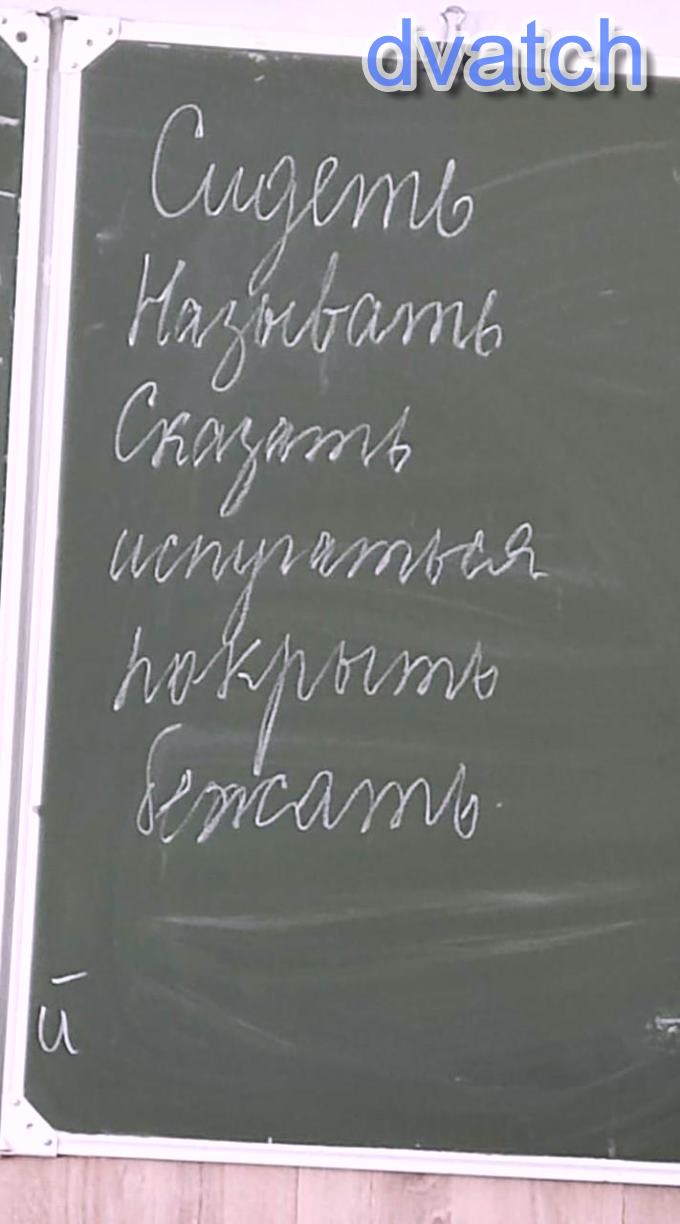 dvatch
Сидеть
Называть
Сказать
испугаться
покрыть
бежать.
й